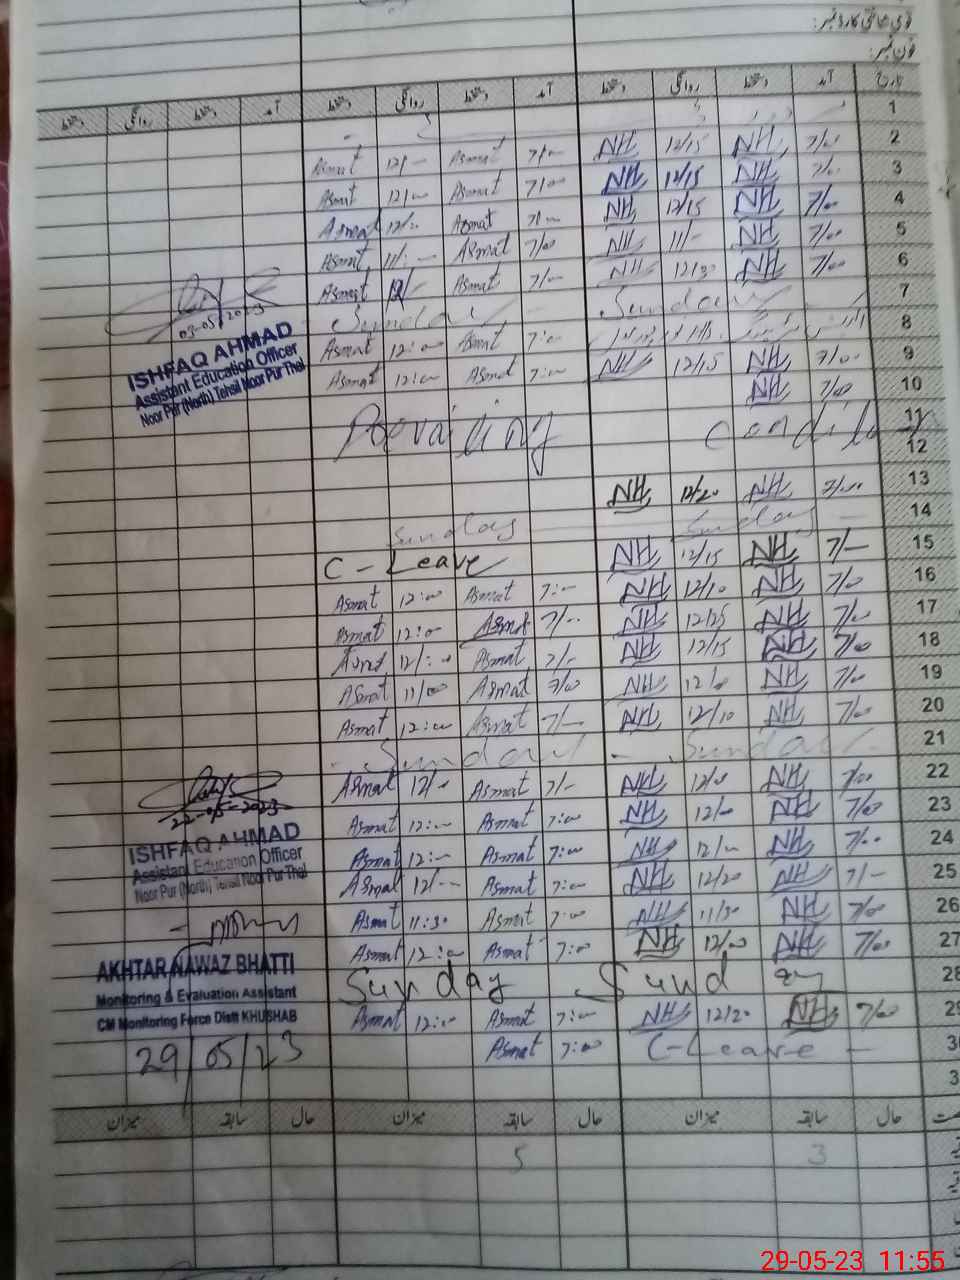 فون نمبر:
تاریخ آمد دستخط روانگی دستخط آمد دستخط روانگی دستخط آمد دستخط روانگی دستخط
1
2 7/00 NH 12/15 NH 7/00 Asmat 12/00 Asmat
3 7/00 NH 12/15 NH 7/00 Asmat 12/00 Asmat
4 7/00 NH 12/15 NH 7/00 Asmat 12/00 Asmat
5 7/00 NH 11/- NH 7/00 Asmat 11/:00 Asmat
6 7/00 NH 12/30 NH 7/00 Asmat 12/- Asmat
7 Sunday Sunday
8 7:00 Asmat 12:00 Asmat
9 7/00 NH 12/15 NH 7:00 Asmat 12:00 Asmat
10 7/00 NH
11
12
13 7/00 NH 12/20 NH
14 Sunday Sunday
15 7/- NH 12/15 NH C-Leave
16 7/00 NH 12/10 NH 7:00 Asmat 12:00 Asmat
17 7/00 NH 12/25 NH 7/00 Asmat 12:00 Asmat
18 7/00 NH 12/15 NH 7/- Asmat 12/:00
19 7/00 NH 12/00 NH 7/00 Asmat 11/00 Asmat
20 7/00 NH 12/10 NH 7/- Asmat 12:00 Asmat
21 Sunday Sunday
22 7/00 NH 12/00 NH 7/- Asmat 12/00 Asmat
23 7/00 NH 12/00 NH 7:00 Asmat 12:00 Asmat
24 7/00 NH 12/00 NH 7:00 Asmat 12:00 Asmat
25 7/- NH 12/20 NH 7:00 Asmat 12/00 Asmat
26 7/00 NH 11/30 NH 7:00 Asmat 11:30 Asmat
27 7/00 NH 12/00 NH 7:00 Asmat 12:00 Asmat
28 Sunday Sunday
29 7/00 NH 12/20 NH 7:00 Asmat 12:00 Asmat
30 C-Leave 7:00 Asmat
حال سابقہ میزان حال سابقہ میزان حال سابقہ میزان
3 5
03-05-2023
ISHFAQ AHMAD
Assistant Education Officer
Noor Pur (North) Tehsil Noor Pur Thal
22-05-2023
ISHFAQ AHMAD
Assistant Education Officer
Noor Pur (North) Tehsil Noor Pur Thal
AKHTAR NAWAZ BHATTI
Monitoring & Evaluation Assistant
CM Monitoring Force Distt KHUSHAB
29/05/23
29-05-23 11:55